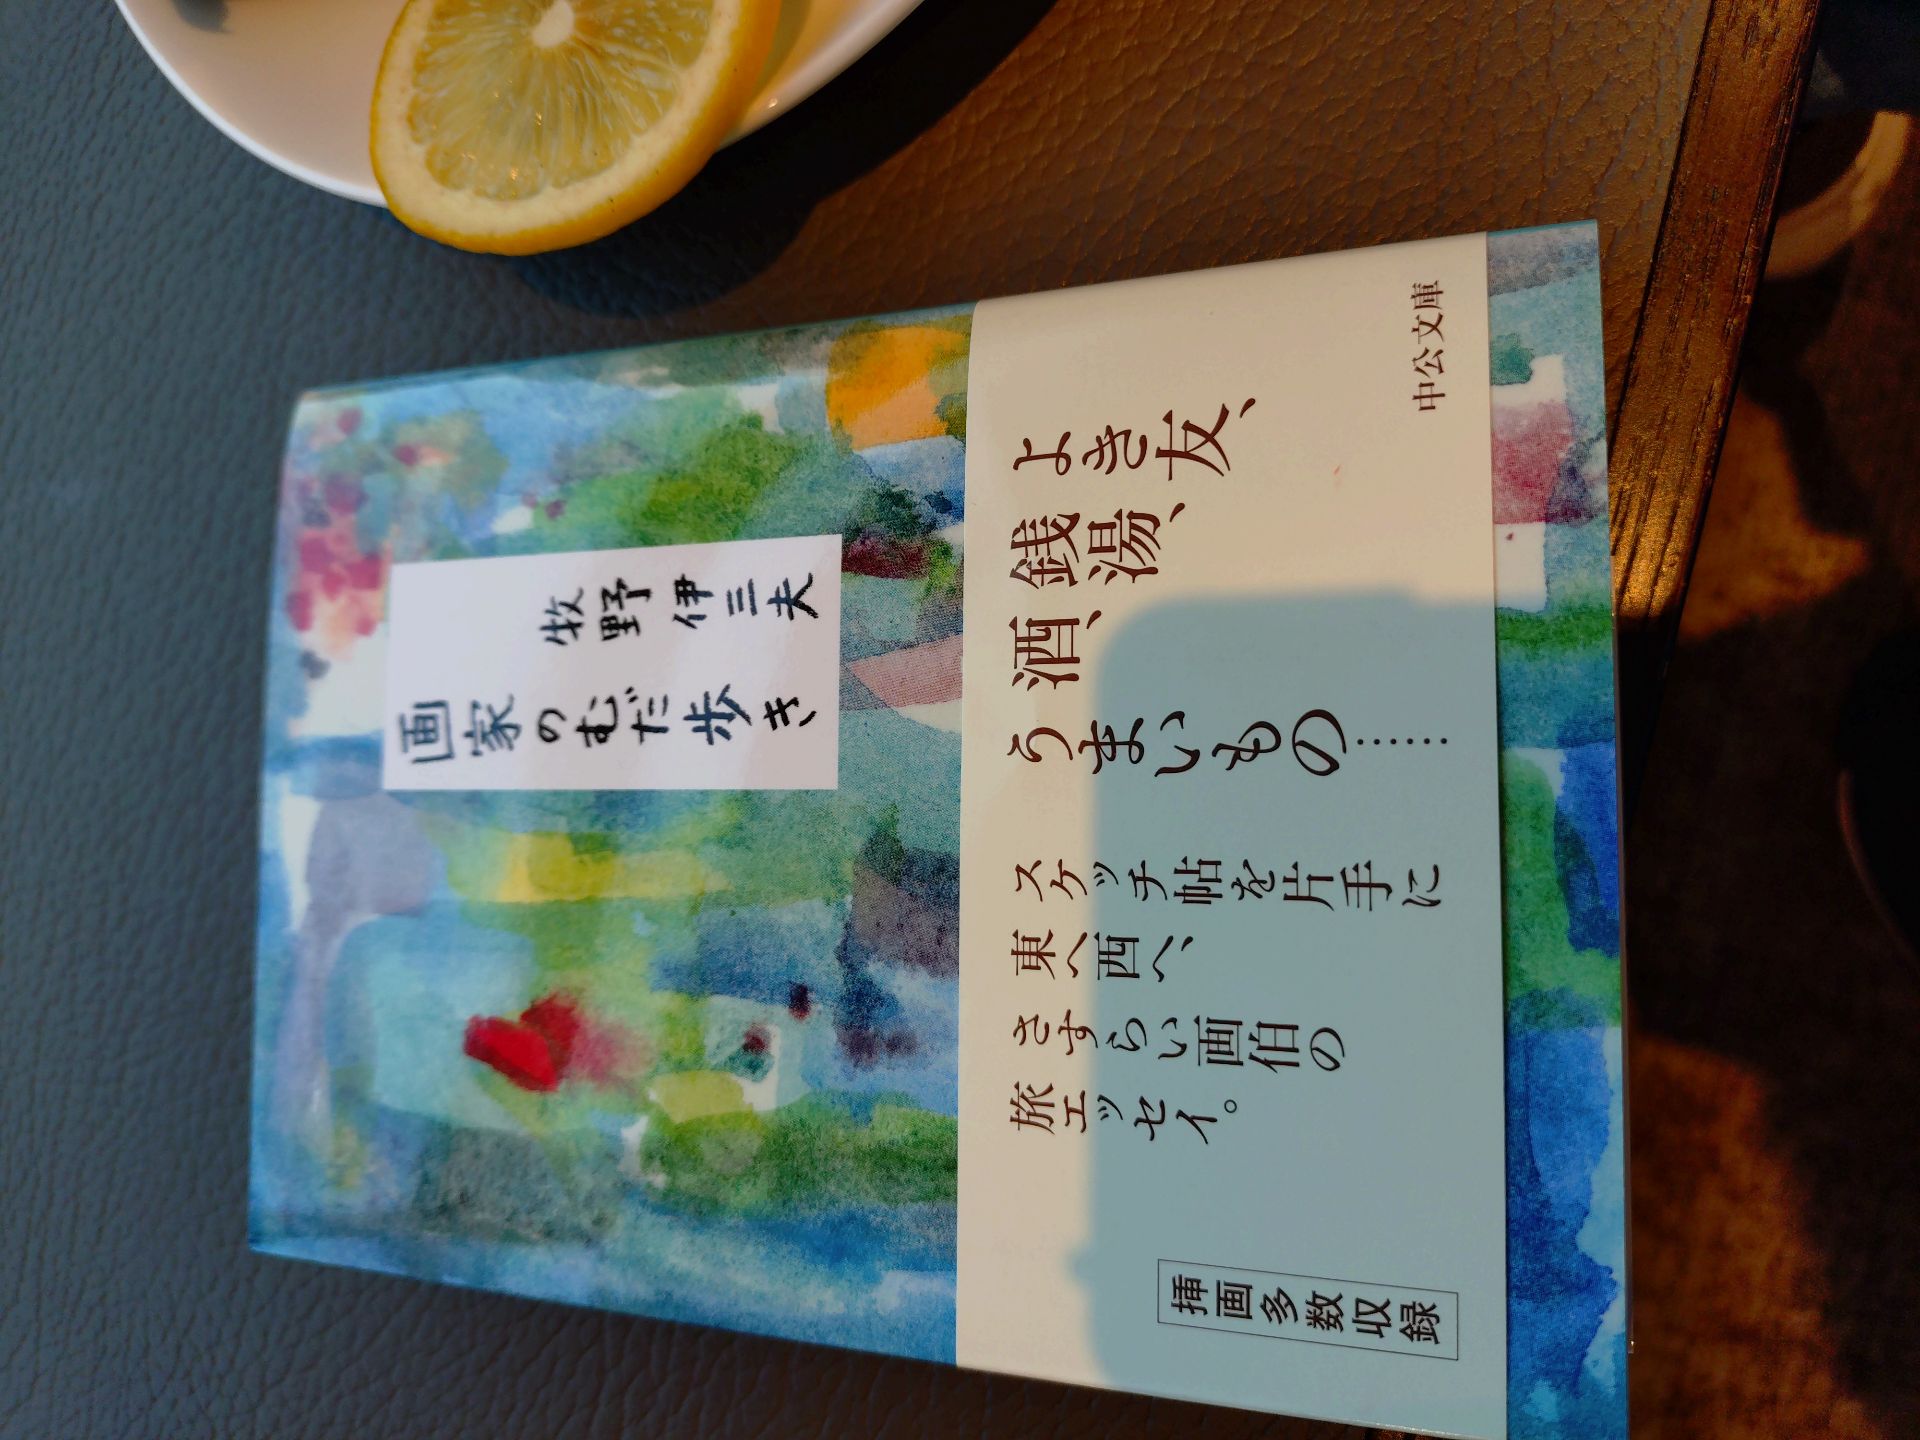 牧野伊三夫
画家のむだ歩き
中公文庫
よき友、
銭湯、
酒、
うまいもの……
スケッチ帖を片手に
東へ西へ、
さすらい画伯の
旅エッセイ。
挿画多数収録